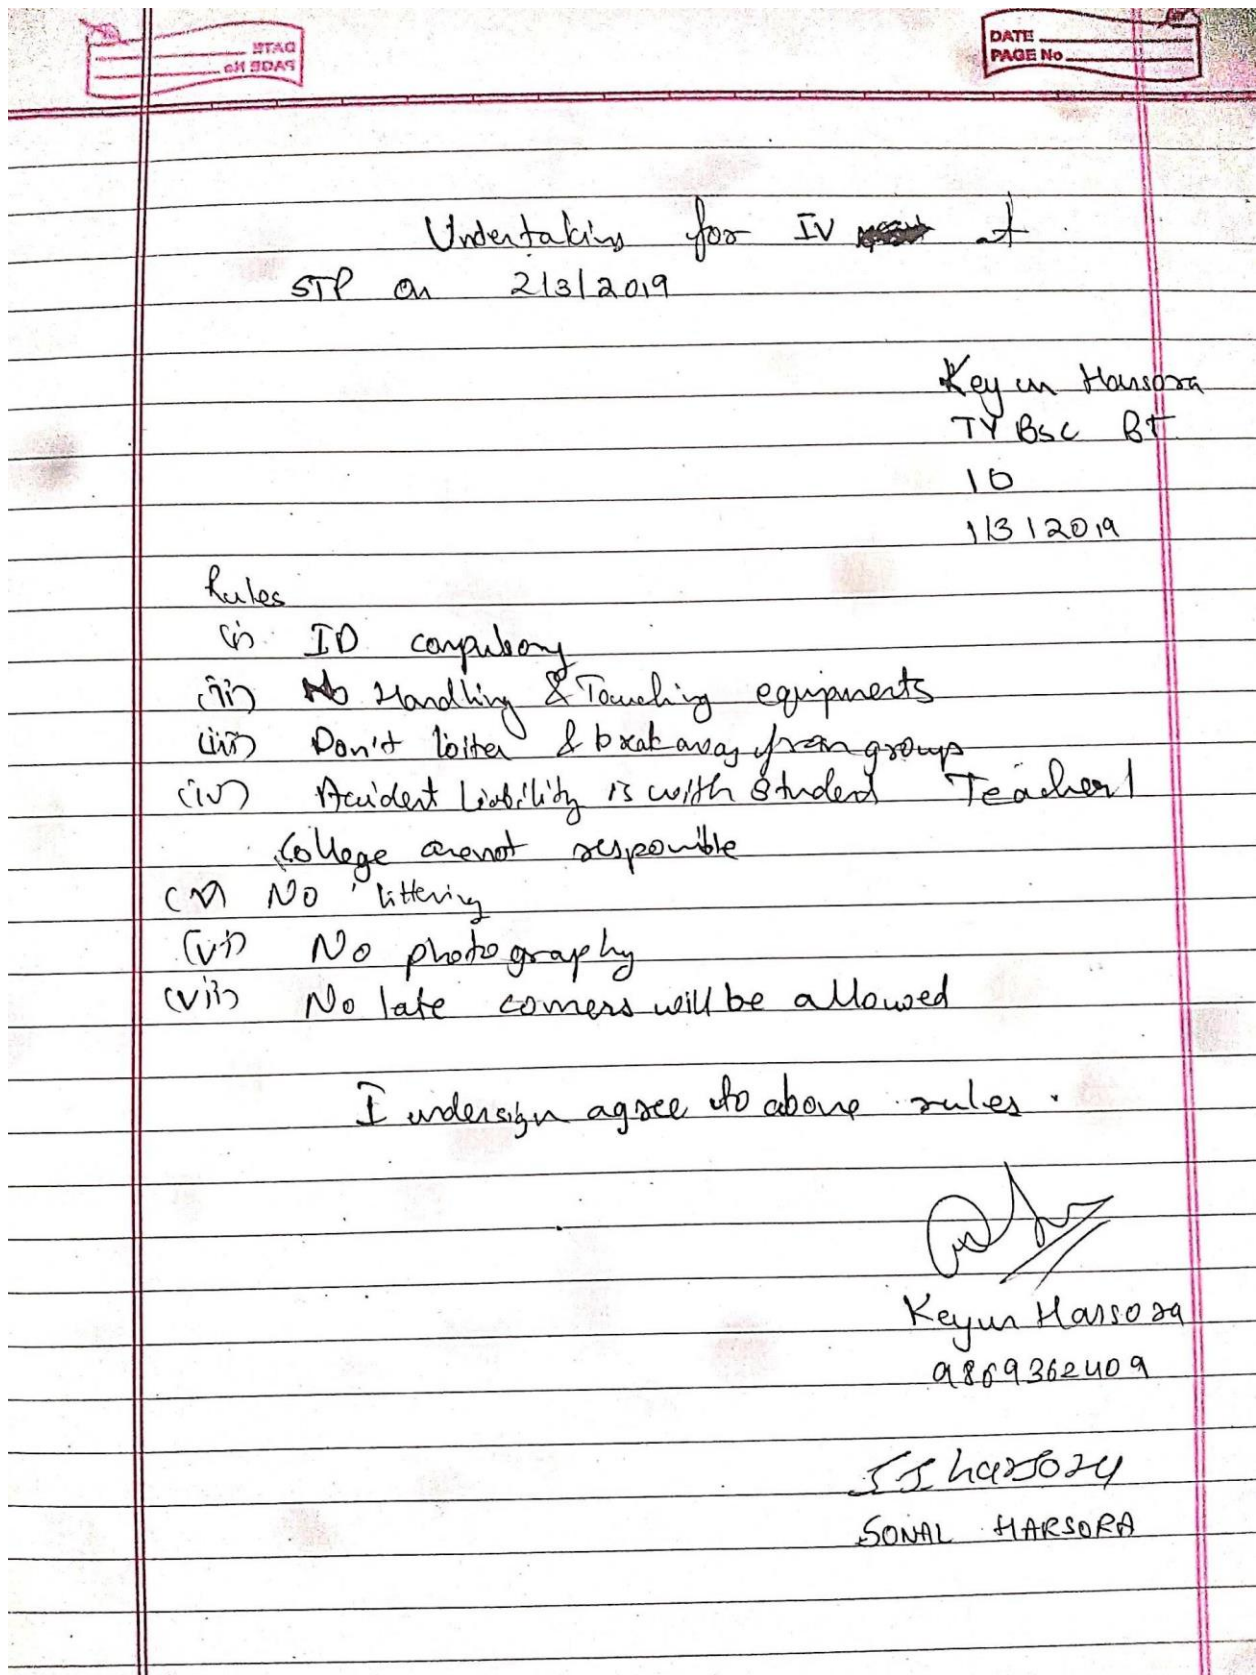 DATE
PAGE No.
DATE
PAGE No.
Undertaking for IV at
STP on 2/3/2019
Keyur Harsora
TY Bsc BT
10
1/3/2019
Rules
(i) ID compulsory
(ii) No Handling & Touching equipments
(iii) Don't loiter & break away from group
(iv) Accident Liability is with student Teacher/
College are not responsible
(v) No littering
(vi) No photography
(vii) No late comers will be allowed
I undersign agree to above rules.
Keyur Harsora
9869362409
SJharsora
SONAL HARSORA